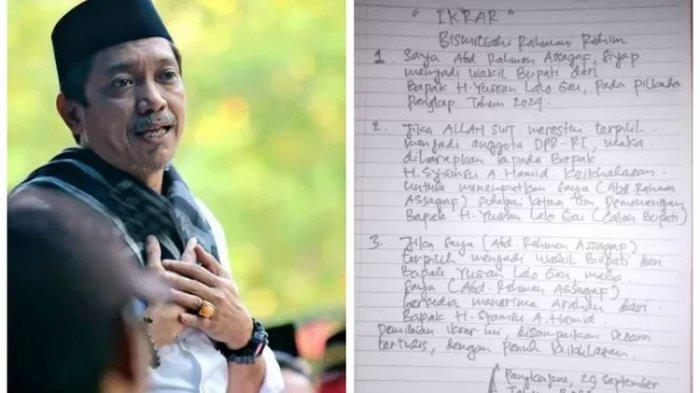 " IKRAR "
Bismillahi Rahmani Rahim
1. Saya Abd Rahman Assagaf, siap
menjadi Wakil Bupati dari
Bapak H. Yusran Lalo Gau, pada pilkada
Pangkep Tahun 2024.
2. Jika ALLAH SWT merestui terpilih
menjadi anggota DPR-RI, maka
diharapkan kepada Bapak
H. Syamsu A. Hamid Keikhlasan
untuk menempatkan saya (Abd. Rahman
Assagaf) sebagai ketua Tim Pemenangan
Bapak H. Yusran Lalo Gau (Calon Bupati)
3. Jika saya (Abd. Rahman Assagaf)
terpilih menjadi wakil Bupati dari
Bapak Yusran Lalo Gau, maka
saya (Abd. Rahman Assagaf)
bersedia menerima Arahan dari
Bapak H. Syamsu A. Hamid.
Demikian ikrar ini, disampaikan secara
tertulis, dengan penuh keikhlasan.
Pangkajene, 29 September